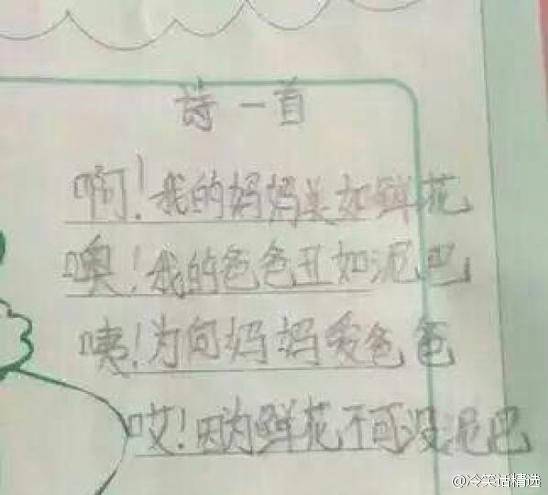 诗一首
啊!我的妈妈美如鲜花
噢!我的爸爸丑如泥巴
咦!为何妈妈爱爸爸
哎!因为鲜花不可没泥巴
@冷笑话精选